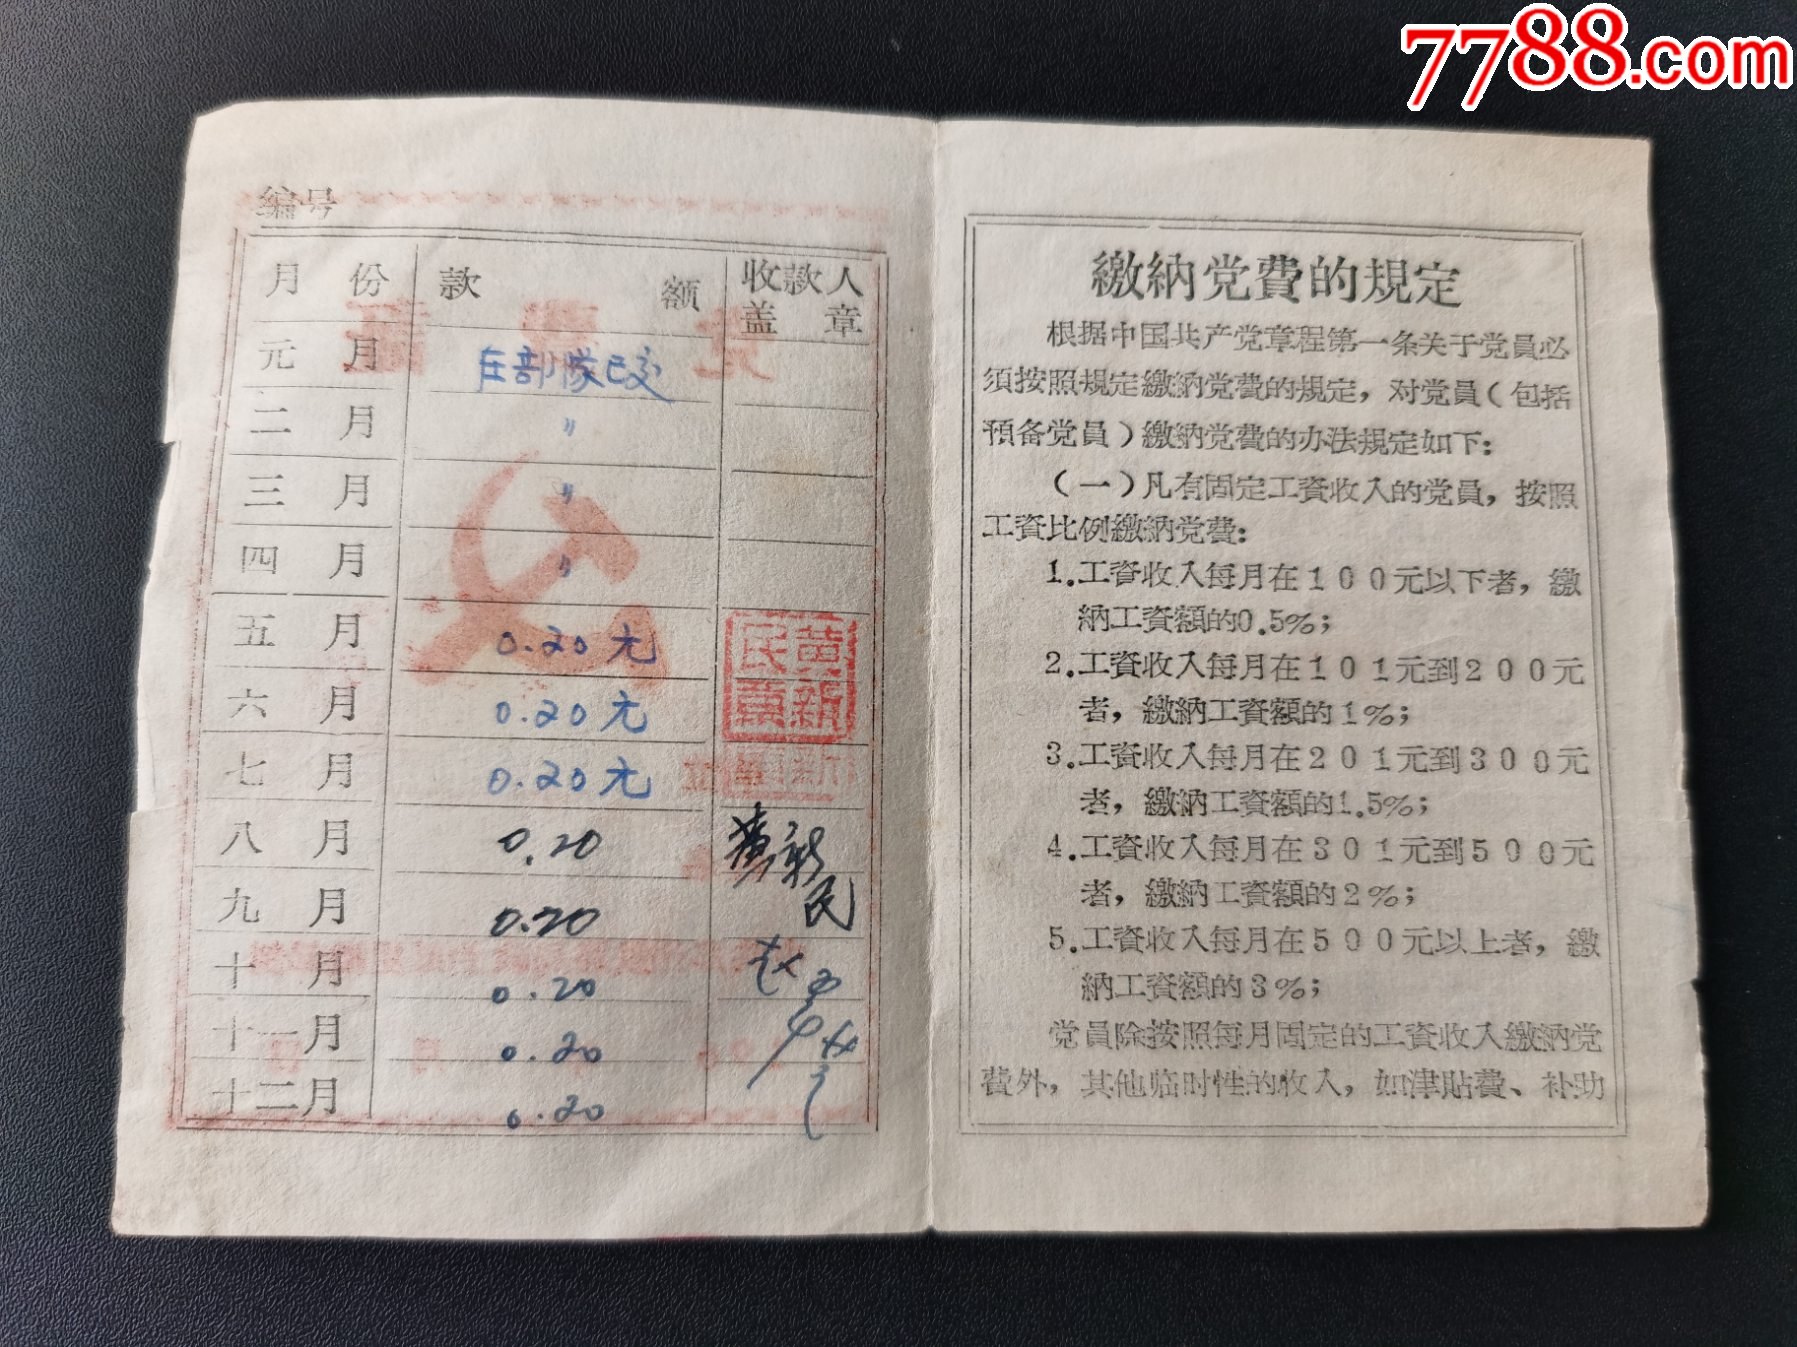 7788.com
编号
月 份 款 额 收款人
盖 章
元 月 在部隊已交
二 月 〃
三 月 〃
四 月 〃
五 月 0.20元
六 月 0.20元
七 月 0.20元
八 月 0.20
九 月 0.20
十 月 0.20
十一月 0.20
十二月 0.20
黄新
民章
黄新
民
繳納党費的規定
根据中国共产党章程第一条关于党員必
須按照規定繳納党費的規定，对党員（包括
預备党員）繳納党費的办法規定如下：
（一）凡有固定工資收入的党員，按照
工資比例繳納党費：
1.工資收入每月在100元以下者，繳
納工資額的0.5%；
2.工資收入每月在101元到200元
者，繳納工資額的1%；
3.工資收入每月在201元到300元
者，繳納工資額的1.5%；
4.工資收入每月在301元到500元
者，繳納工資額的2%；
5.工資收入每月在500元以上者，繳
納工資額的3%；
党員除按照每月固定的工資收入繳納党
費外，其他临时性的收入，如津貼費、补助